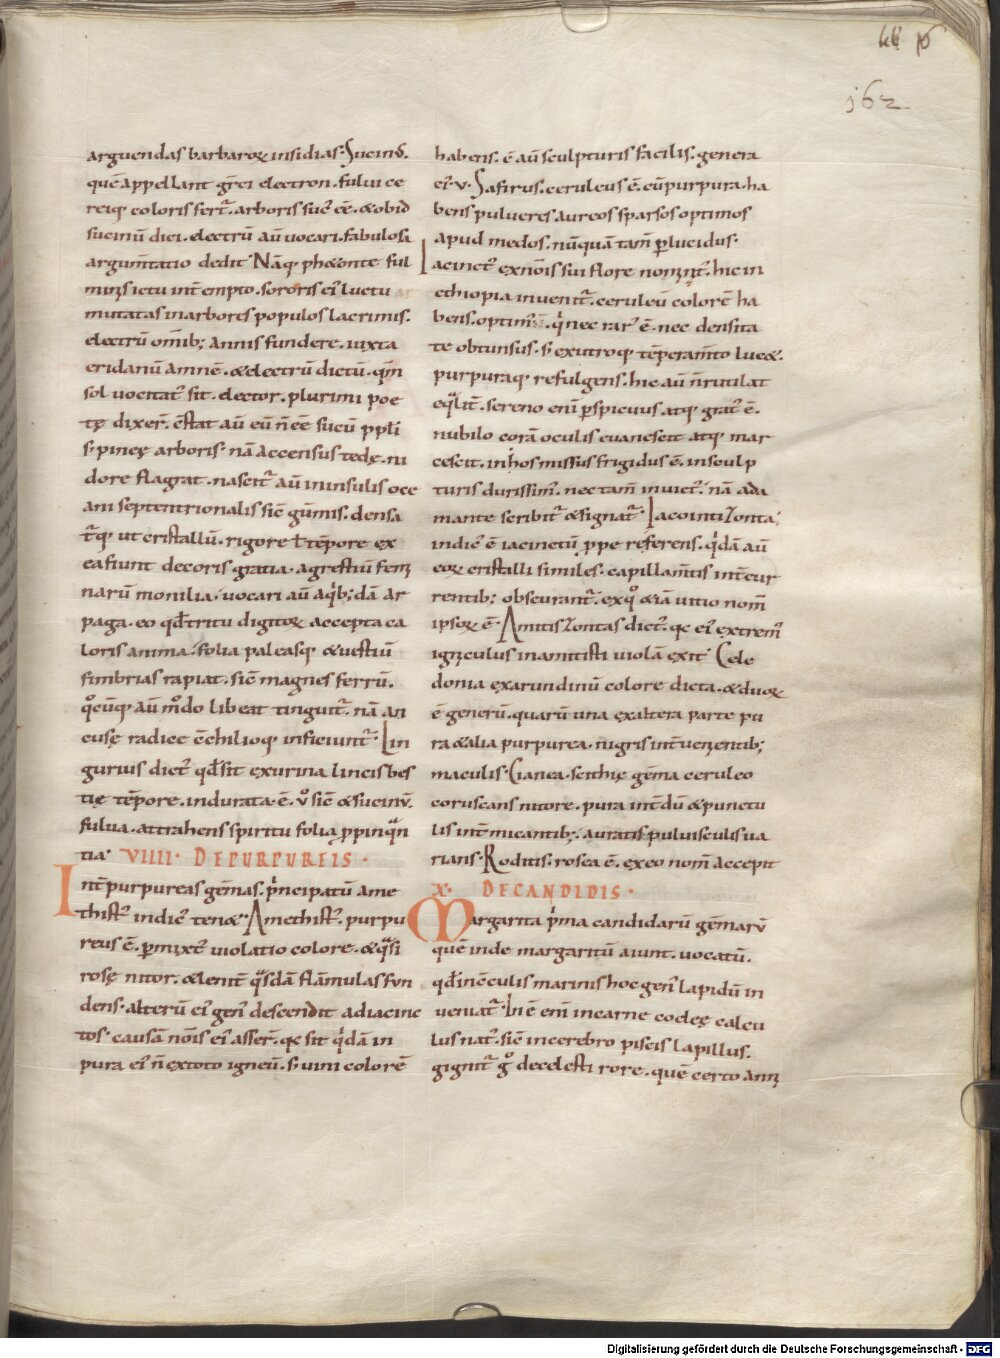 kł p
162
arguendas barbaroꝝ insidias. Sucinꝰ.
quē appellant grēi electron. fului ce
reiq; coloris fert̄. arboris sucꝰ eē. & obid
sucinū dici. electrū aū uocari. fabulosa
argum̄tatio dedit. Nāq; pha&onte ful
minis ictu int̄empto. sororis eiꝰ luctu
mutatas in arbores populos lacrimis.
electrū om̄ib; annis fundere. iuxta
eridanū amnē. & electrū dictū. qm̄
sol uocitatꝰ sit. elector. plurimi poe
tę dixer̄. c̄stat aū eū ñ eē sucū ppłi
s; pineę arboris. nā accensus tedę. ni
dore flagrat. nascit̄ aū in insulis oce
ani septentrionalis sic̄ gūmis. densa
t̄q; ut cristallū. rigore ł tēpore ex
ea fiunt decoris gratia. agrestiū femi
narū monilia. uocari aū a qb; dā ar
paga. eo qd̄ tritu digitoꝝ accepta ca
loris anima. folia paleasq; & uestiū
fimbrias rapiat. sic̄ magnes ferrū.
qo̊cūq; aū mo̊do libeat tinguit̄. nā an
cusę radice c̄chilioq; inficiunt̄. Lin
gurius dictꝰ qd̄ sit ex urina lincis bes
tię tēpore. indurata. ē. v̊ sic̄ & sucinū.
fulua. attrahens spiritu folia ppinqn̄
tia. VIIII. DEPURPUREIS.
Int̄ purpureas gēmas. pncipatū ame
thistꝰ indicꝰ ten&. Amethistꝰ. purpu
reus ē. pmixtꝰ uiolatio colore. & qsi
rosę nitor. & lenit̄ qsdā flāmulas fun
dens. alterū eiꝰ genꝰ descendit ad iacinc
tos. causā nōis eiꝰ asser̄. qe sit qdā in
pura eiꝰ ñ ex toto igneū. s; uini colorē
habens. ē aū sculpturis facilis. genera
eiꝰ. v. Safirus. ceruleus ē. cū purpura. ha
bens pulueres aureos sparsos optimos
apud medos. nūquā tam̄ plucidus.
Iacinctꝰ ex nōis sui flore nominatꝰ. hic in
ethiopia inuenit̄. ceruleū colorē ha
bens. optimꝰ. q nec rarꝰ ē. nec densita
te obtunsus. s; ex utroq; tēperam̄to luc&.
purpuraq; refulgens. hic aū ñ rutilat
eqlit̄. sereno enī pspicuus atq; gratꝰ ē.
nubilo corā oculis euanescit atq; mar
cescit. in hos missus frigidus ē. in sculp
turis durissimꝰ. nec tam̄ inuictꝰ. nā ada
mante scribit̄ & signat̄. Iacointizonta;
indicꝰ ē iacinctū ppe referens. qdā aū
eoꝝ cristalli similes. capillam̄tis int̄cur
rentib; obscurant̄. ex quo & iā uitio nom̄
ipsoꝝ ē. Amitistontas dictꝰ. qe eiꝰ extrem̄
igniculus in amitisti uiolā exit. Cele
donia ex arundinū colore dicta. & duoꝝ
ē generū. quarū una ex altera parte pu
ra & alia purpurea. nigris int̄uenientib;
maculis. Cianea. scithię gēma ceruleo
coruscans nitore. pura int̄dū & punctu
lis int̄micantib; auratis puluisculis ua
rians. Roditis. rosea ē. ex eo nom̄ accepit
X. DECANDIDIS.
Margarita pma candidarū gēmarū
quē inde margaritū aiunt. uocatū.
qd̄ in c̄culis marinis hoc genꝰ lapidū in
ueniat̄. In ē enī in carne cocleę calcu
lus natꝰ. sic̄ in cerebro piscis lapillus.
gignit̄ g̊ de celesti rore. quē certo anni
Digitalisierung gefördert durch die Deutsche Forschungsgemeinschaft - DFG